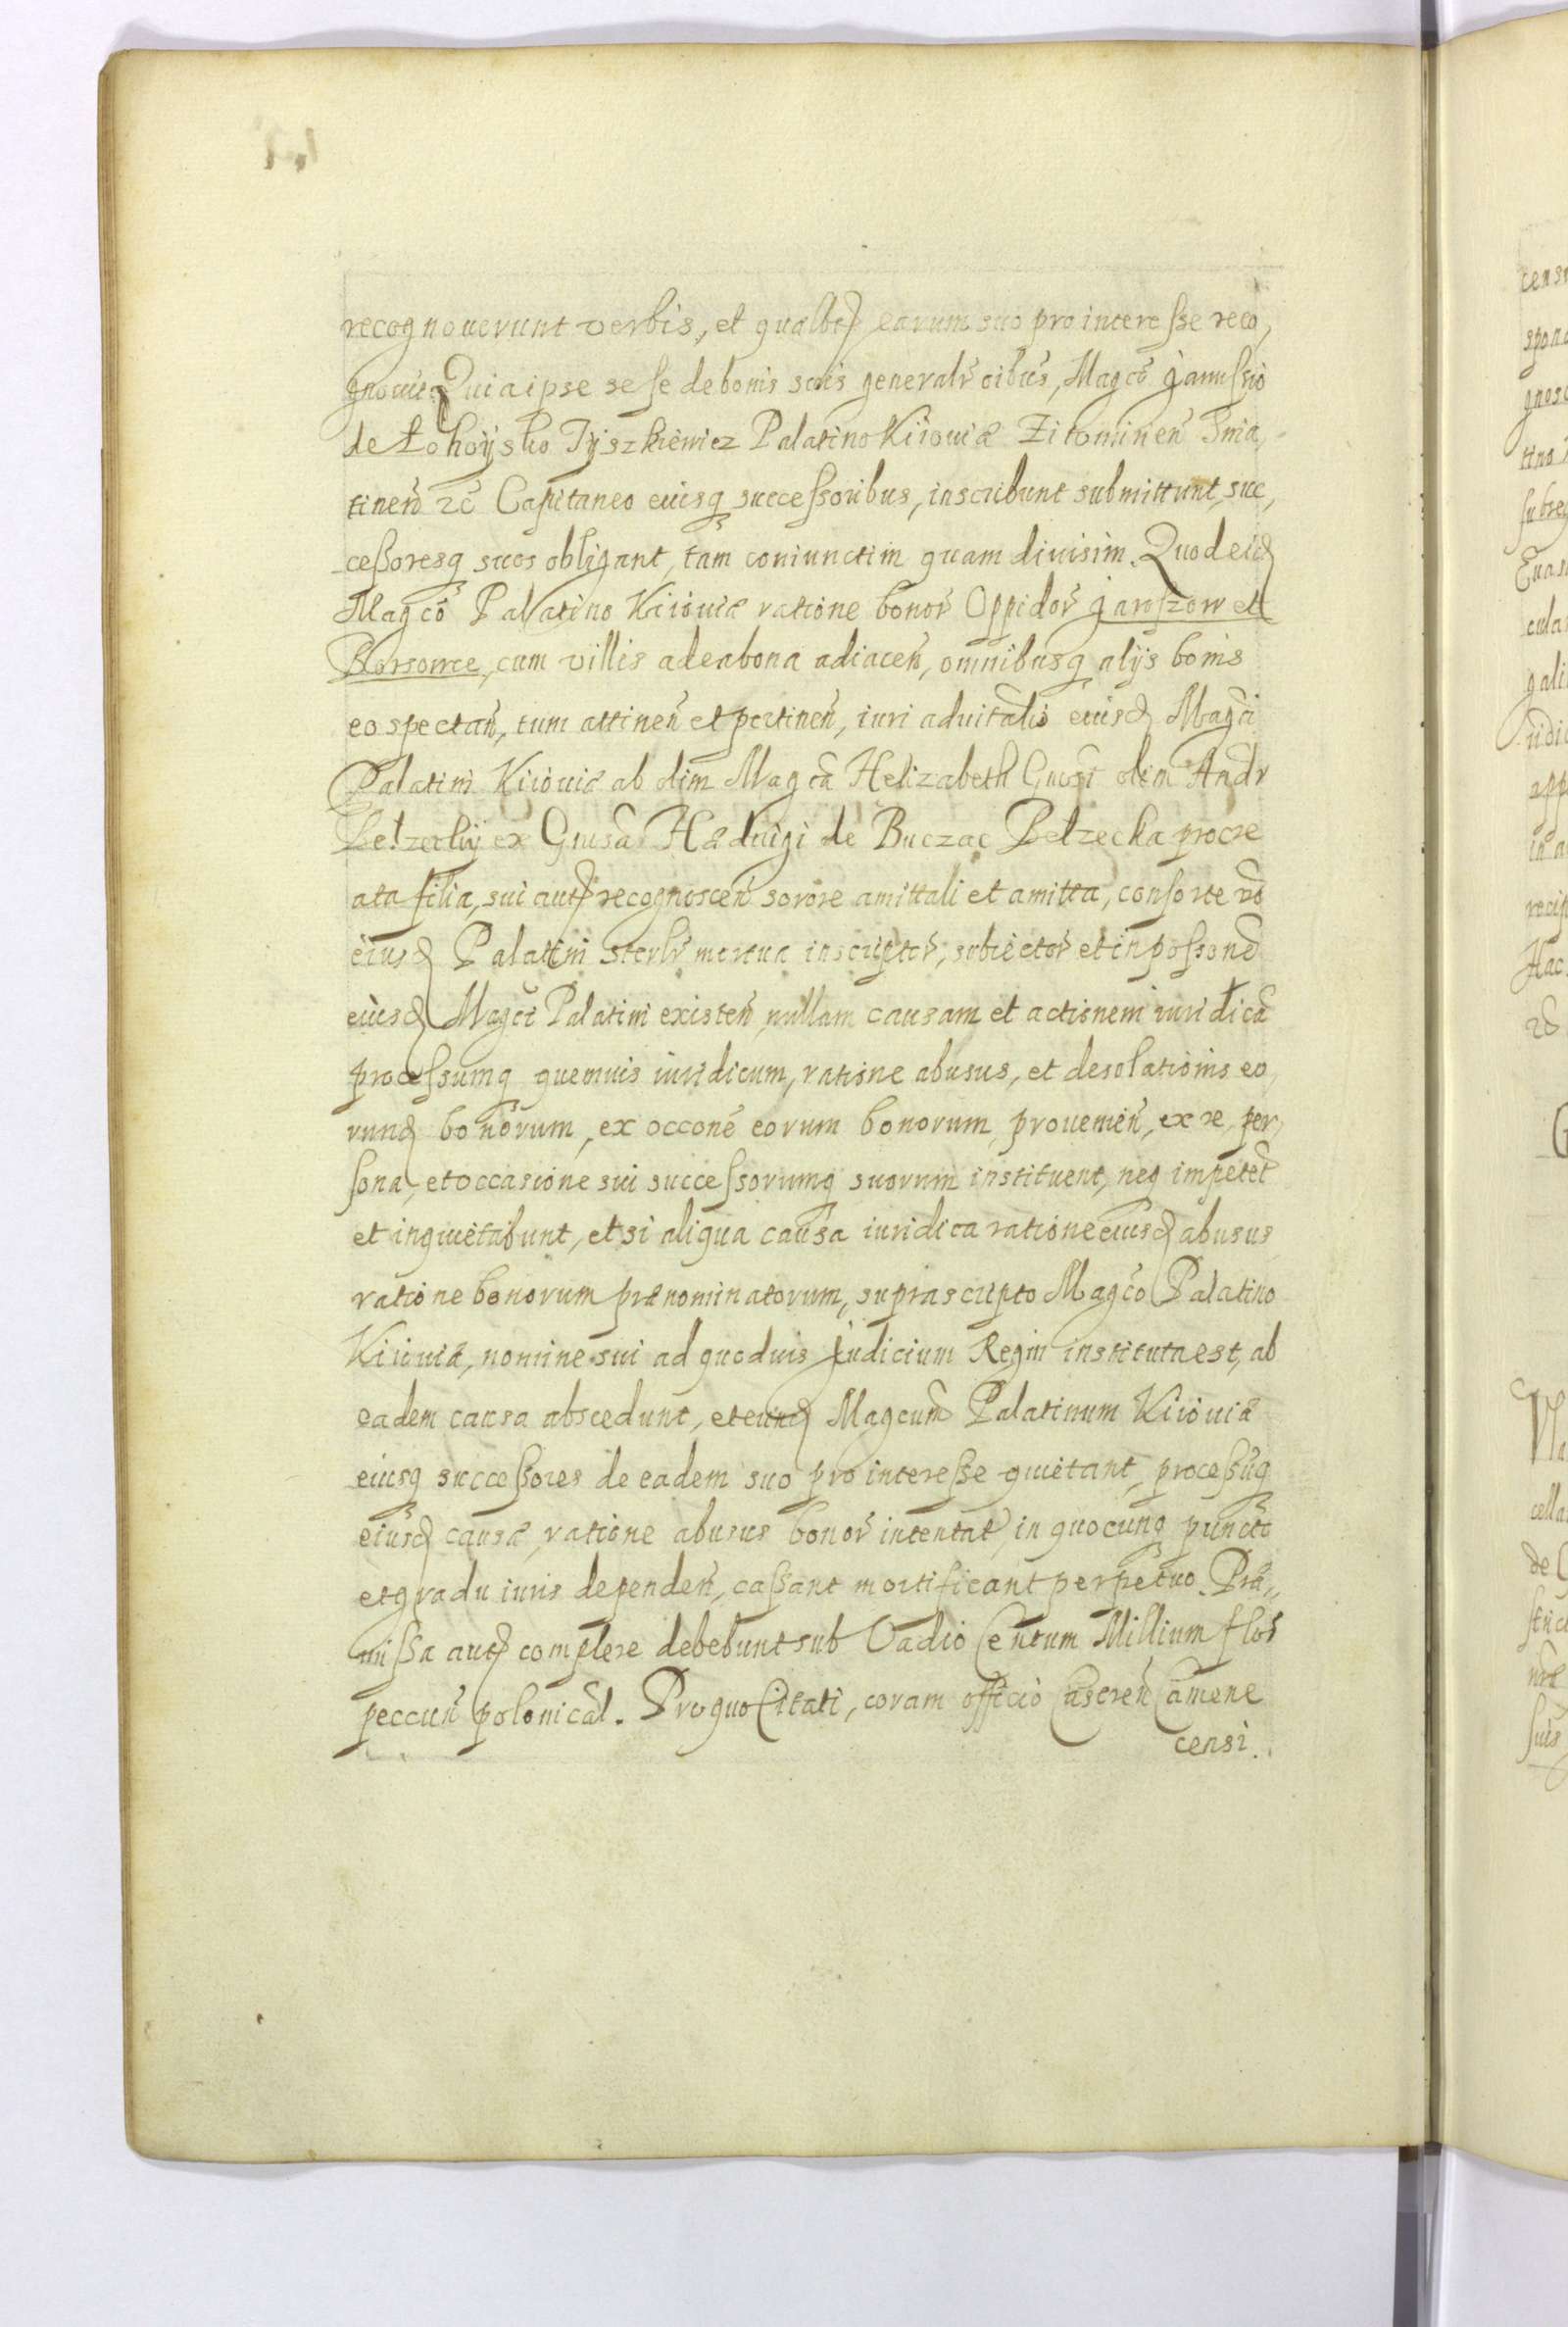 recognouerunt verbis, et qualbet earum suo pro interesse reco,
gnouit Quia ipse se se de bonis suis generalr oibus, Magco Janussio
de Łohoÿsko Tÿszkiewicz Palatino Kiiouiæ Zitominen̄ Snia,
tinen̄ zc Capitaneo eiusq successoribus, inscribunt submittunt, suc,
cessoresq suos obligant, tam coniunctim quam diuisim. Quod eid
Magco Palatino Kiiouiæ ratione bonor Oppidor Jaroszow et
cum villis ad ea bona adiacen̄, omnibusq alijs bonis
eo spectan̄, tum attinen̄ et pertinen̄, iuri aduitalio eiusd Magci
Palatini Kiiouiæ ab olim Magca Helizabeth Gnosi olim Andr
Belzeckij ex Gnusa Hæduigi de Buczac Belzecka procre
ata filia, sui aut recognoscen̄ sorore amittali et amitta, consorte vo
eiusd Palatini sterilr mortua inscriptor, subiector et in possone
eiusd Magci Palatini existen̄ nullam causam et actionem iuridica
processumq quemuis iuridicum, ratione abusus, et desolationis eo,
rund bonorum, ex occone eorum bonorum prouenien̄, ex re, per,
sona, et occasione sui successorumq suorum instituent, neq impetet
et inquietabunt, et si aliqua causa iuridica ratione eiusd abusus
ratione bonorum prænominatorum, suprascripto Magco Palatino
Kiiouiæ, nomine sui ad quoduis Judicium Regni instituta est, ab
eadem causa abscedunt, et eund Magcum Palatinum Kiiouiæ
eiusq successores de eadem suo pro interesse quietant, processuq
eiusd causæ, ratione abusus bonor intentat, in quocunq puncto
et gradu iuris dependen̄, cassant mortificant perpetuo. Præ,,
missa aut complere debebunt sub Vadio Centum Millium flor
peccun̄ polonical. Pro quo Citati, coram officio Castren̄ Camene
censi.